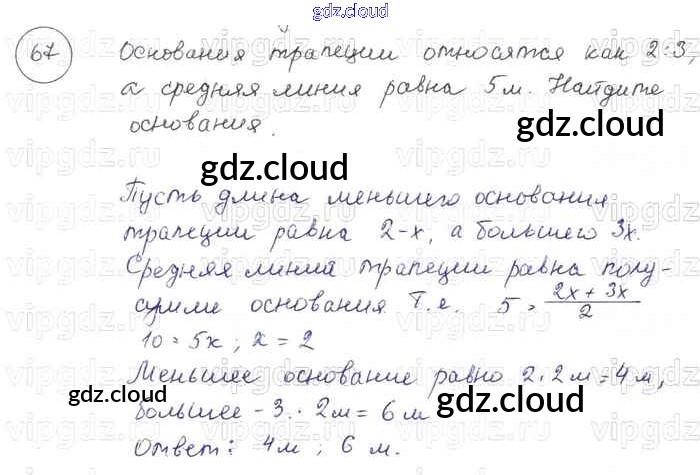 gdz.cloud
67 Основания трапеции относятся как 2:3,
а средняя линия равна 5м. Найдите
основания.
gdz.cloud
gdz.cloud
Пусть длина меньшего основания
трапеции равна 2-x, а большего 3x.
Средняя линий трапеции равна полу-
сумме основания т.е. 5 = (2x + 3x)/2
10 = 5x ; x = 2
Меньшее основание равно 2.2м = 4м,
gdz.cloud
gdz.cloud
большее - 3. · 2м = 6м
Ответ: 4м ; 6 м.